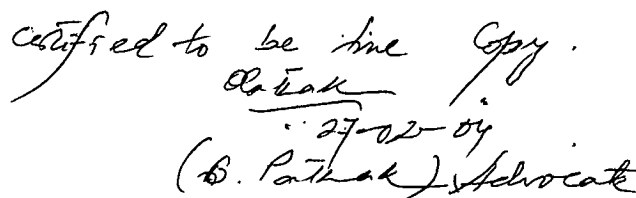 Certified to be true Copy.
Pathak
27-02-04
(B. Pathak) Advocate